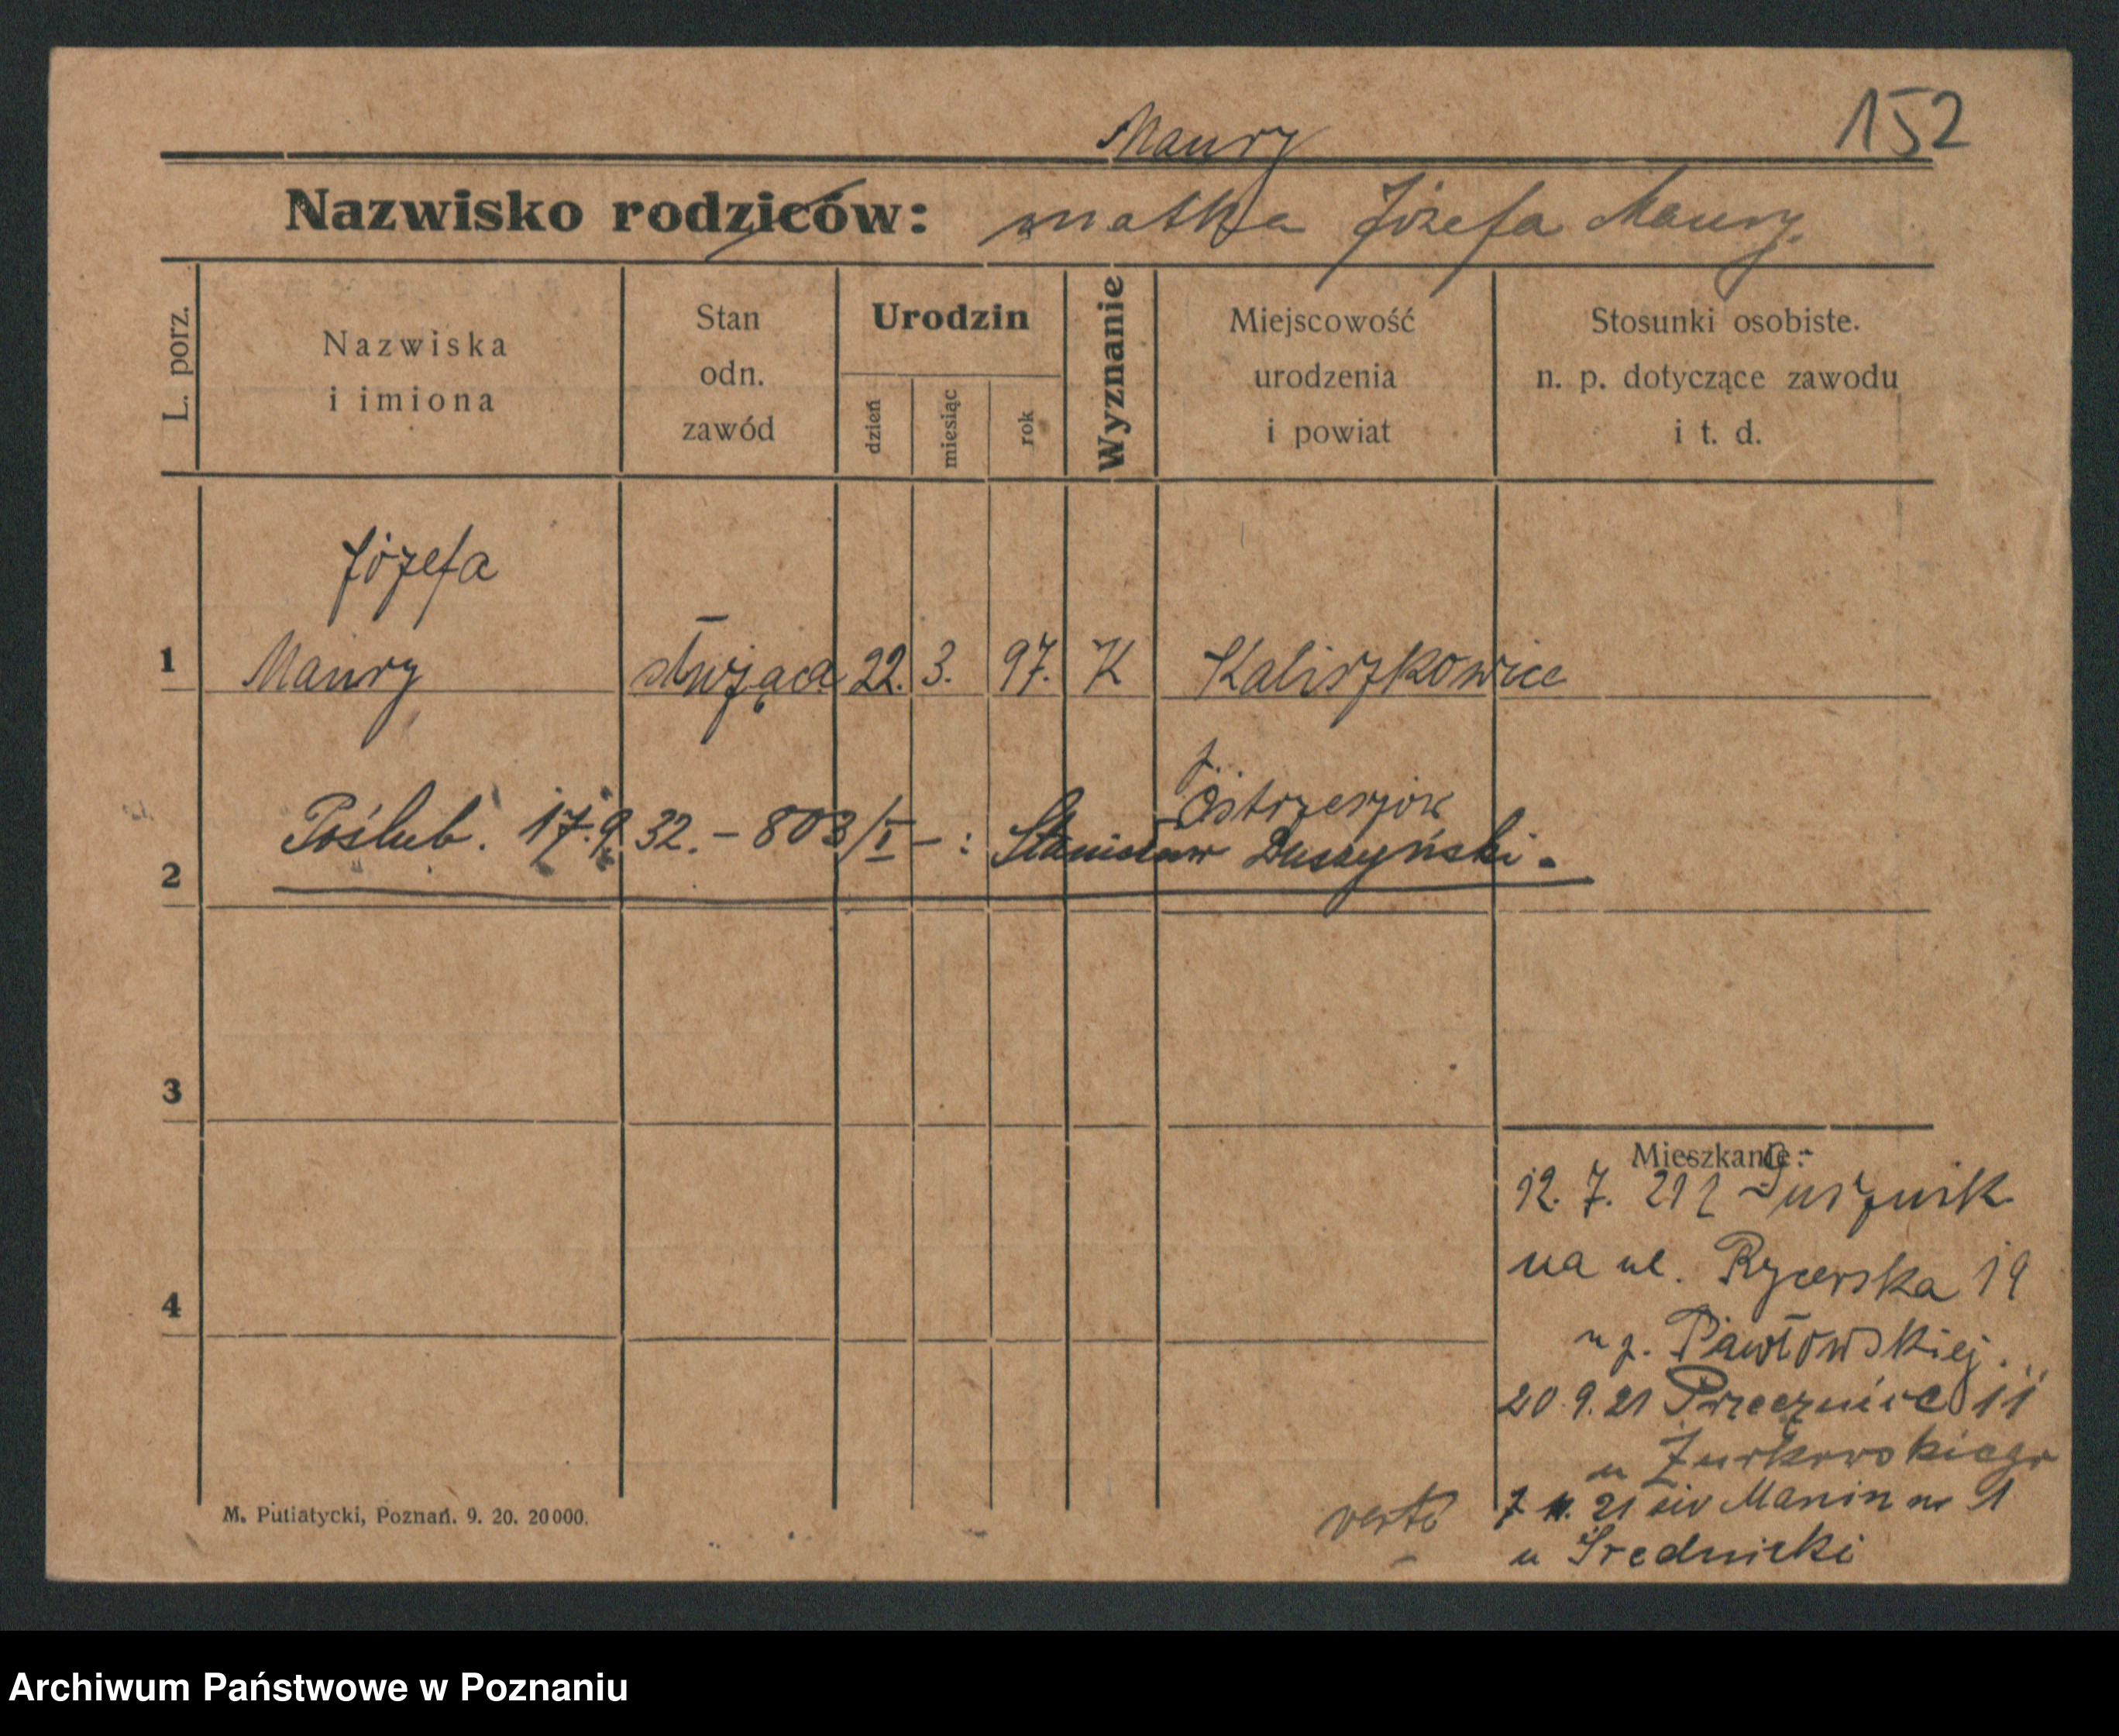 152
Maury
Nazwisko rodziców: matka Józefa Maury.
L. porz.
Nazwiska
i imiona
Stan
odn.
zawód
Urodzin
dzień
miesiąc
rok
Wyznanie
Miejscowość
urodzenia
i powiat
Stosunki osobiste.
n. p. dotyczące zawodu
i t. d.
Józefa
1 Maury służąca 22. 3. 97. K Kaliszkowice
Ostrzeszów
2 Poślub. 17.9.32. – 803/I – : Stanisław Duszyński.
3
4
Mieszkanie:
12. 7. 21 z
na ul. Rycerska 19
u p. Pawłowskiej.
20.9.21 Przecznica 11
u Żurkowskiego
7 11. 21 św Marcin nr 1
u Średnicki
verte
M. Putiatycki, Poznań. 9. 20. 20000.
Archiwum Państwowe w Poznaniu